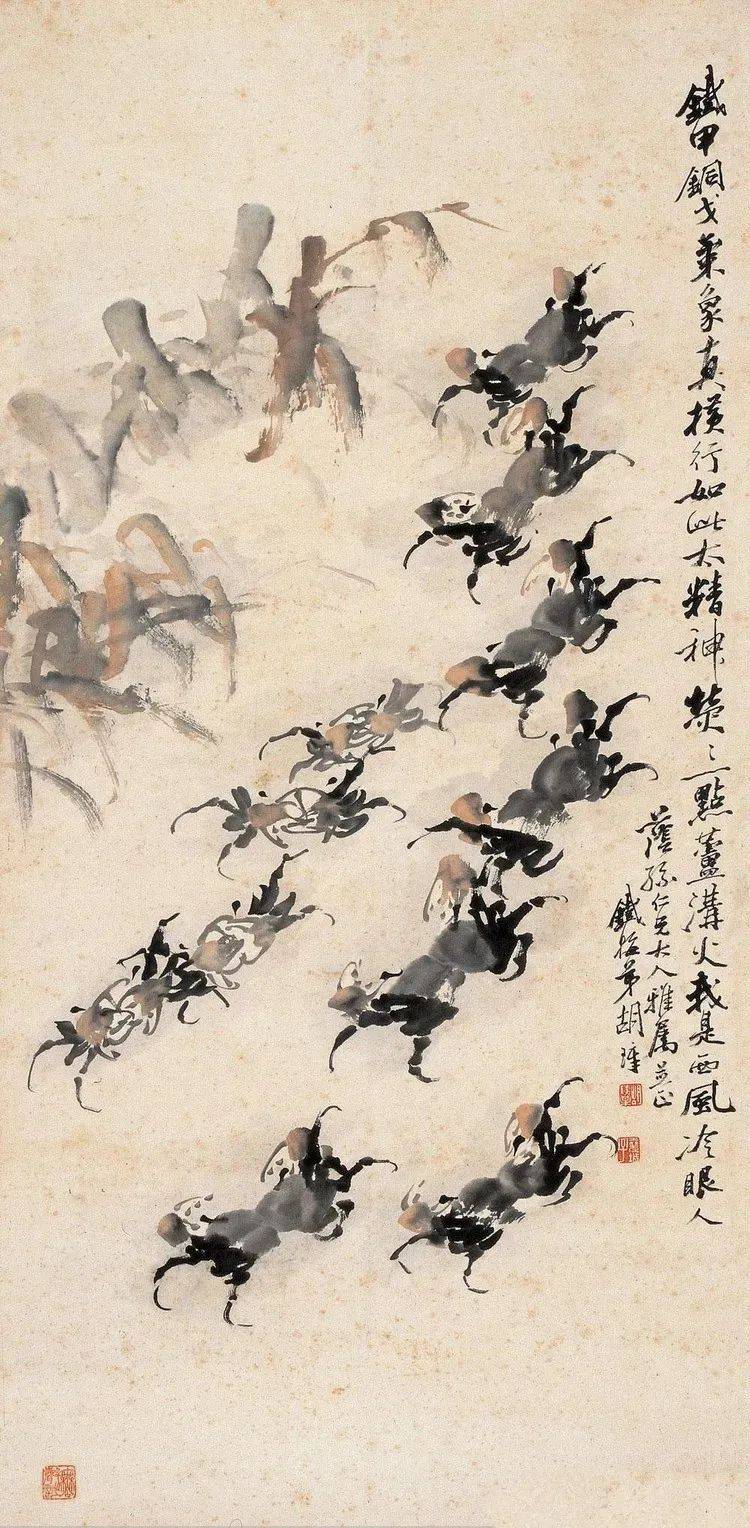 鐵甲銅戈氣象真橫行如此太精神熒〻一點蘆溝火我是西風冷眼人
蔭孫仁兄大人雅屬並正
鐵梅弟胡璋